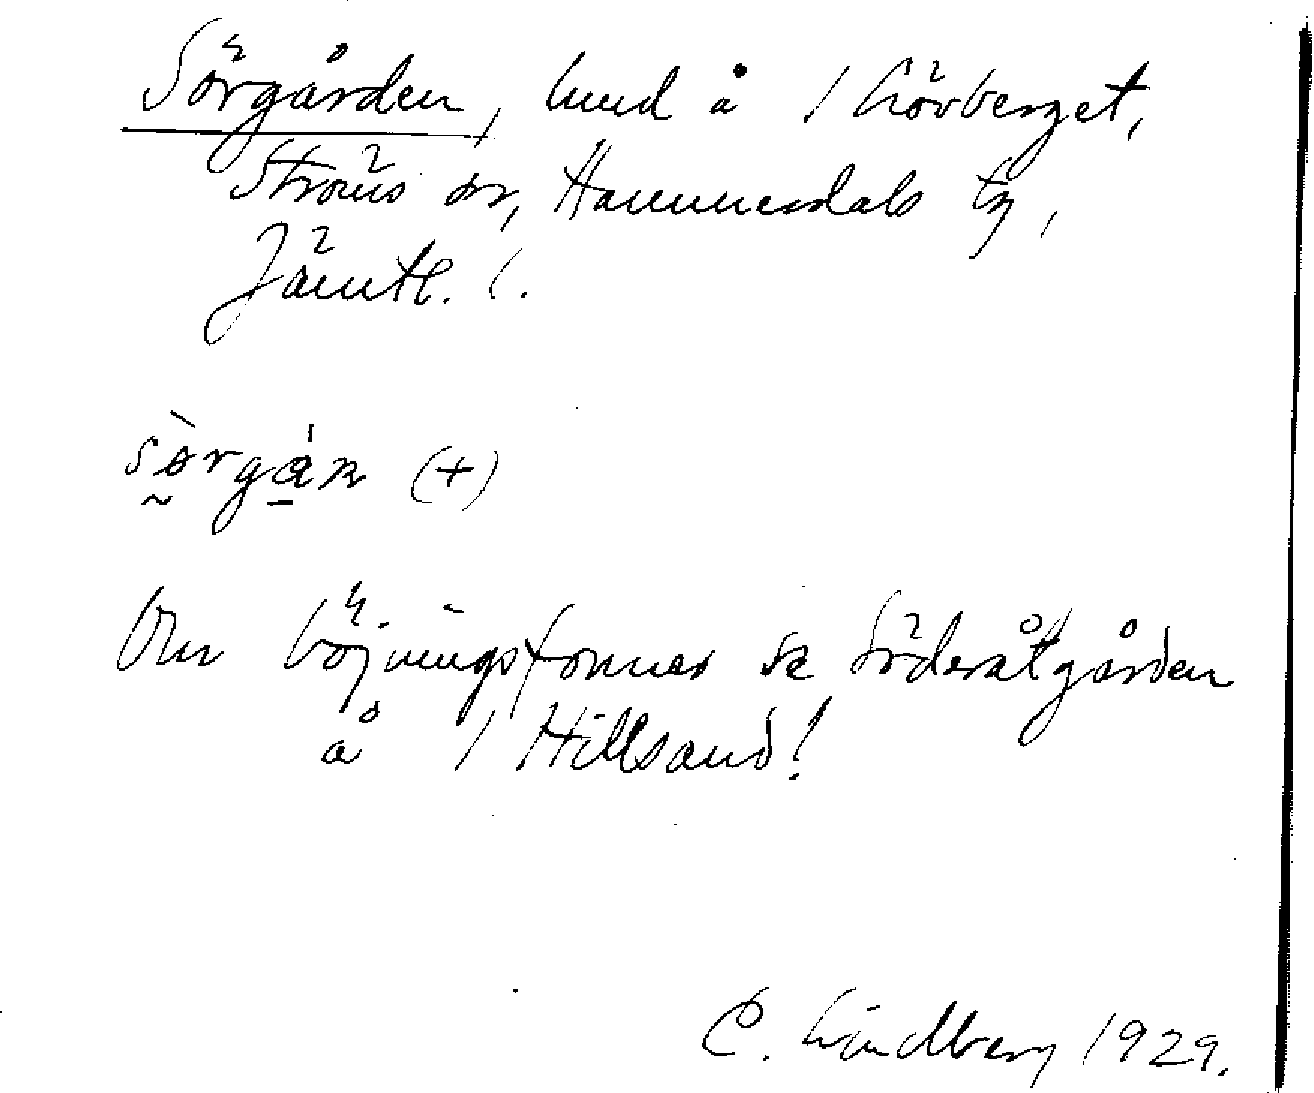 Sörgården, hmd å 1 Lövberget,
Ströms sn, Hammerdals tg,
Jämtl. l.
sörgán (+)
Om böjningsformer se Söderåtgården
å 1 Hillsand!
C. Lindberg 1929.